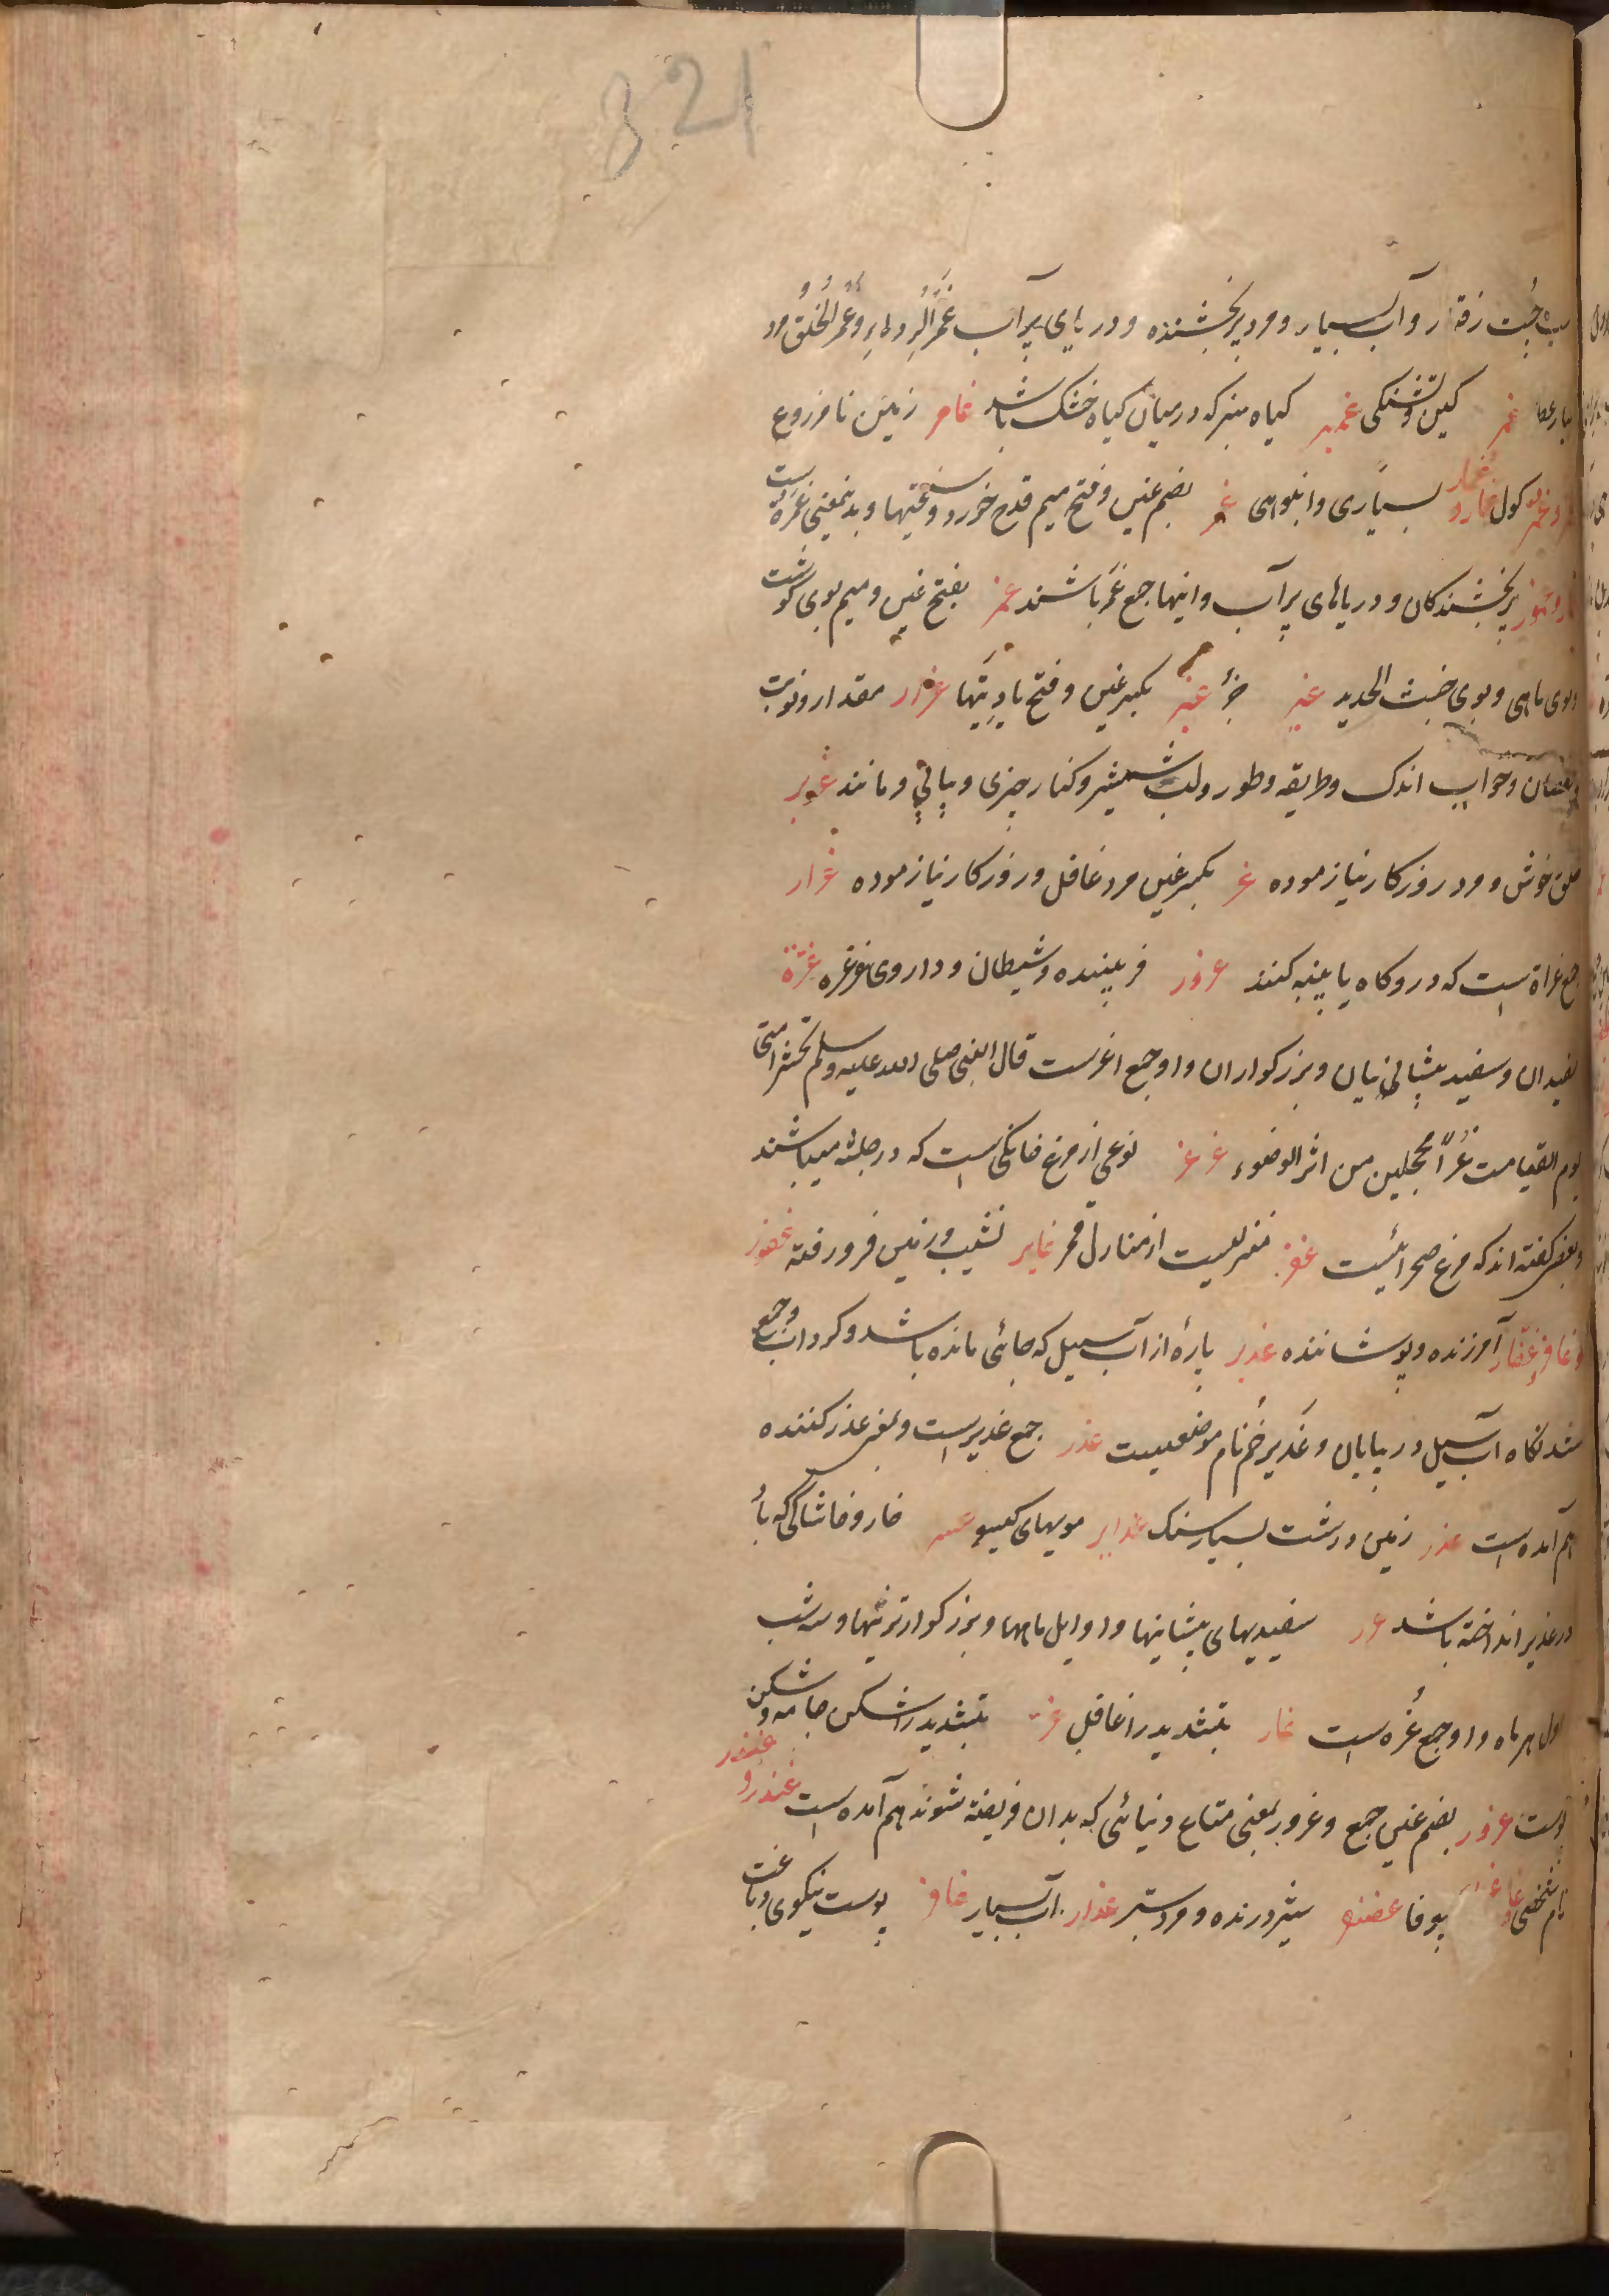 321
جُست رفتار و آب بسیار و مرد پر بخشنده و دریای پر آب غَمْرُ الرِداء وغُمْرُ الخُلُق مرد
غمر کین و تشنکی غمیر کیاه سبز که در میان کیاه خشک باشد غامر زمین نا مزروع
کول غمار و غمار بسیاری و انبوهی غمر بضم غین و فتح میم قدح خورد و سختیها و بدینمعنی غمره است
پر بخشندکان و دریاهای پر آب و اینها جمع غَمْر باشند غمر بفتح غین و میم بوی کوشت
و بوی ماهی و بوی خبث الحدید غیر جز غیر بکسر غین و فتح یا دیتها غرار مقدار و نوبت
و نقصان و خواب اندک و طریقه و طور و لب شمشیر و کنار چیزی و پایی و مانند غریر
خلق خوش و مرد روزکار نیازموده غر بکسر غین مرد غافل و روزکار نیازموده غرار
جمع غراره است که درو کاه یا پنبه کنند غرور فریبنده و شیطان و داروی غرغره غرة
سفیدان و سفید پیشانی یان و بزرکواران و او جمع اغرست قال النبی صلی الله علیه و سلم تحشر امتی
یوم القیامت غُرّاً محجلین من اثر الوضوء غرغر نوعی از مرغ خانکی است که در حبشه میباشند
و بعضی کفته اند که مرغ صحرائیست غفر منزلیست از منازل قمر غایر نشیب و زمین فرو رفته غفور
و غافر و غفّار آمرزنده و پوشاننده غدیر پارهٔ از آب سیل که جائی مانده باشد و کرداب و جمع
شدنکاه آب سیل در بیابان و غَدیر خُم نام موضعیست غدر جمع غدیر است و بمعنی غدر کننده
هم آمده است غدر زمین درشت بسیار سنک غدایر مویهای کیسو خار و خاشاکی که باد
در غدیر انداخته باشد غرر سفیدیهای پیشانیها و اوایل ماهها و بزرکوارترینها و سه شب
اول هر ماه و او جمع غُره است غار بتشدید را غافل غر بتشدید را شکن جامه و شکن
پوست غرور بضم غین جمع و غرور بمعنی متاع دنیائی که بدان فریفته شوند هم آمده است غندر و غنذر
نام شخصی بیوفا غضنفر شیر درنده و مرد ستبر غذار آب بسیار پوست نیکوی دباغت